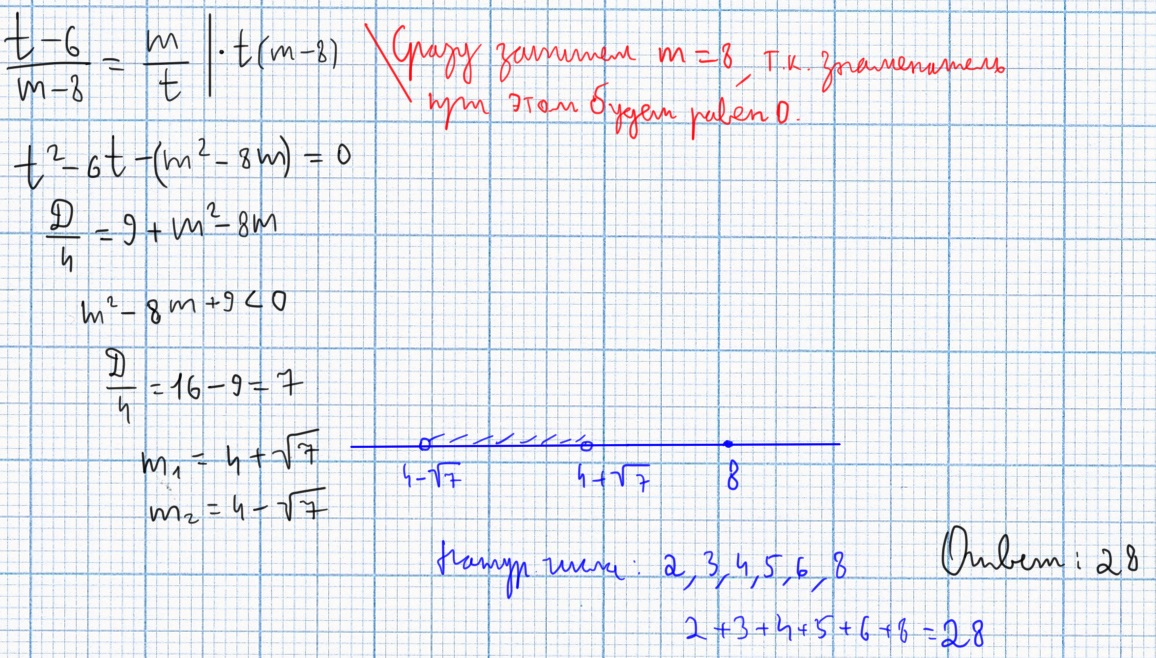 (t-6)/(m-8) = m/t | · t(m-8)
Сразу запишем m=8, т.к. знаменатель
при этом будет равен 0.
t²-6t-(m²-8m)=0
D/4 = 9+m²-8m
m²-8m+9<0
D/4 = 16-9=7
m₁ = 4+√7
m₂ = 4-√7
4-√7 4+√7 8
Натур числа: 2,3,4,5,6,8
Ответ: 28
2+3+4+5+6+8=28